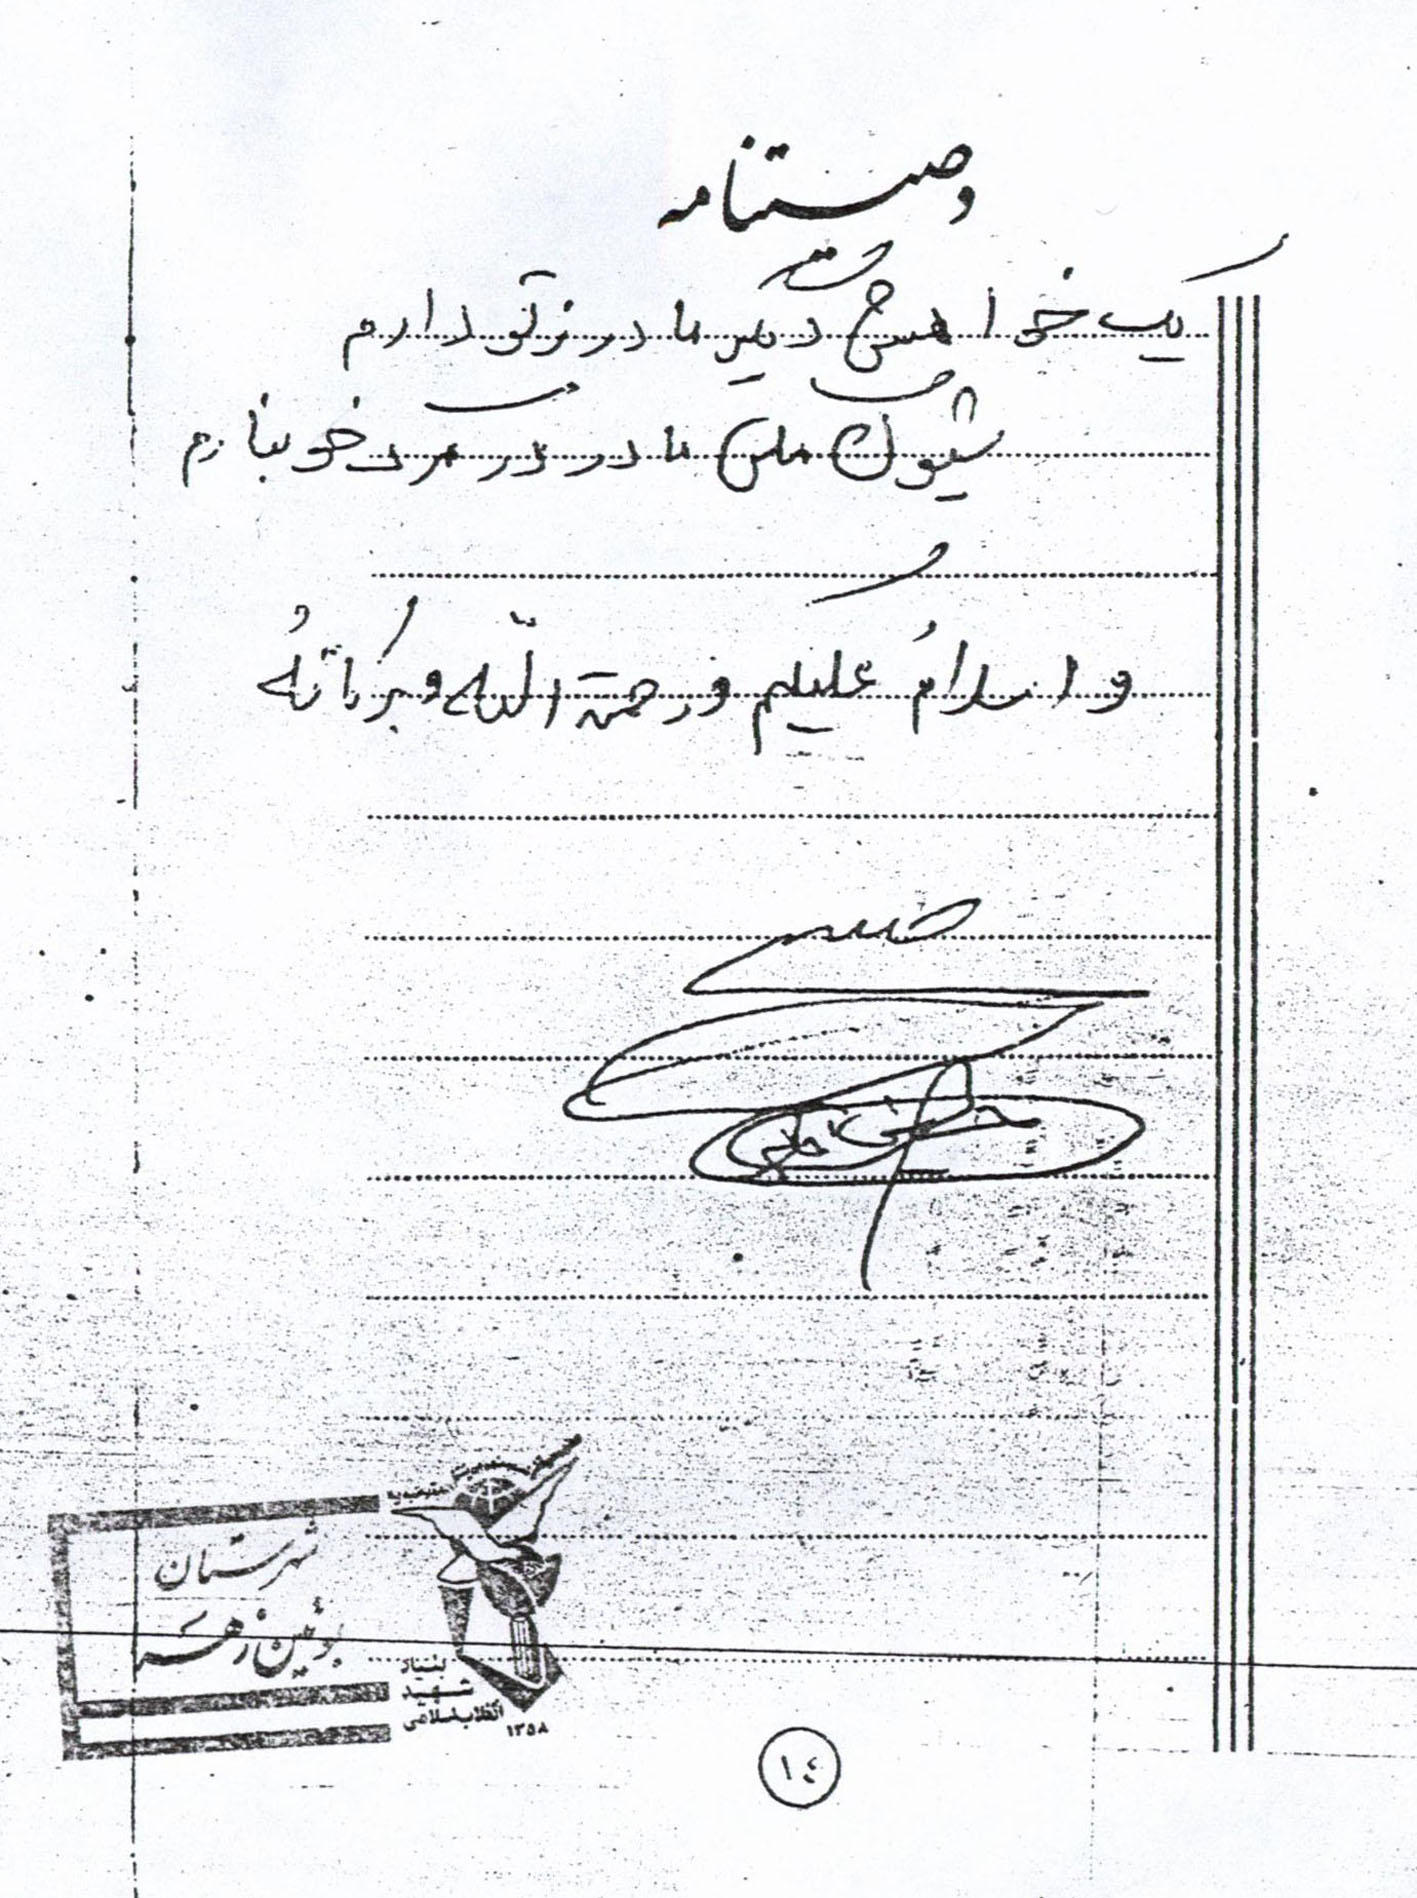 وصیتنامه
یک خواهش دیگر مادر ز تو دارم
شیون مکن مادر در مرگ خونبارم
و اسلامُ علیکم و رحمة اللّه و برکاتهُ
شهرستان
بوئین زهرا
بنیاد
شهید
انقلاب اسلامی
۱۳۵۸
۱٤